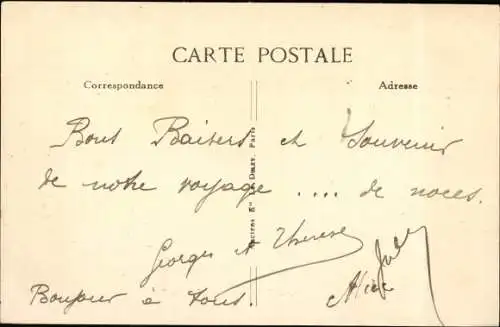 CARTE POSTALE
Correspondance
Adresse
Bons Baisers et Souvenir
de notre voyage .... de noces.
Georges et Therese
Bonjour à tous.
Alice